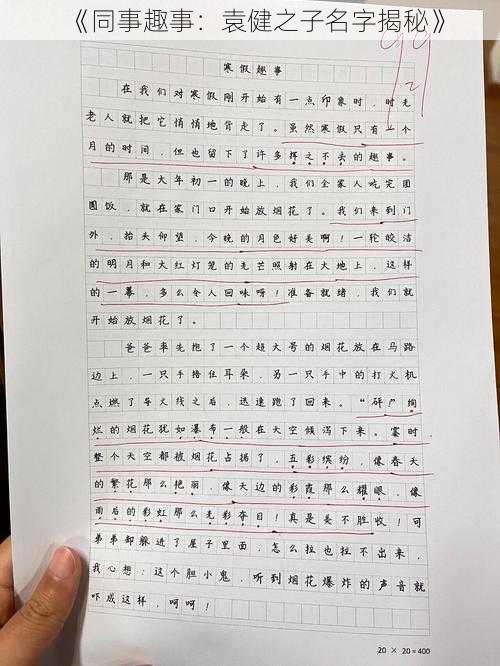 《同事趣事：袁健之子名字揭秘》
寒假趣事
在我们对寒假刚开始有一点印象时，时光
老人就把它悄悄地背走了。虽然寒假只有一个
月的时间，但也留下了许多挥之不去的趣事。
那是大年初一的晚上，我们全家人吃完团
圆饭，就在家门口开始放烟花了。我们来到门
外，抬头仰望，今晚的月色好美啊！一轮皎洁
的明月和大红灯笼的光芒照射在大地上，这样
的一幕，多么令人回味呀！准备就绪，我们就
开始放烟花了。
爸爸率先抱了一个超大号的烟花放在马路
边上，一只手捂住耳朵，另一只手中的打火机
点燃了导火线之后，迅速跑了回来。“砰！”绚
烂的烟花犹如瀑布一般在天空倾泻下来。霎时
整个天空都被烟花占据了，五彩缤纷，像春天
的繁花那么艳丽，像天边的彩霞那么耀眼，像
雨后的彩虹那么光彩夺目！真是美不胜收！可
弟弟却躲进了屋子里面，怎么拉也拉不出来，
我心想：这个胆小鬼，听到烟花爆炸的声音就
吓成这样，呵呵！
20 × 20 = 400